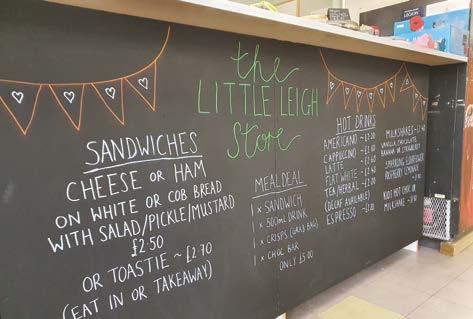 the
LITTLE LEIGH
Store
SANDWICHES
CHEESE OR HAM
ON WHITE OR COB BREAD
WITH SALAD/PICKLE/MUSTARD
£2.50
OR TOASTIE ~ £2.70
(EAT IN OR TAKEAWAY)
MEAL DEAL
1 x SANDWICH
1 x 500ml DRINK
1 x CRISPS (GRAB BAG)
1 x CHOC BAR
ONLY £5.00
HOT DRINKS
AMERICANO
CAPPUCCINO
LATTE
FLAT WHITE
TEA/HERBAL
(DECAF AVAILABLE)
ESPRESSO
MILKSHAKES
VANILLA, CHOCOLATE,
BANANA OR STRAWBERRY
SPARKLING ELDERFLOWER
RASPBERRY LEMONADE
KIDS HOT CHOC OR
MILKSHAKE